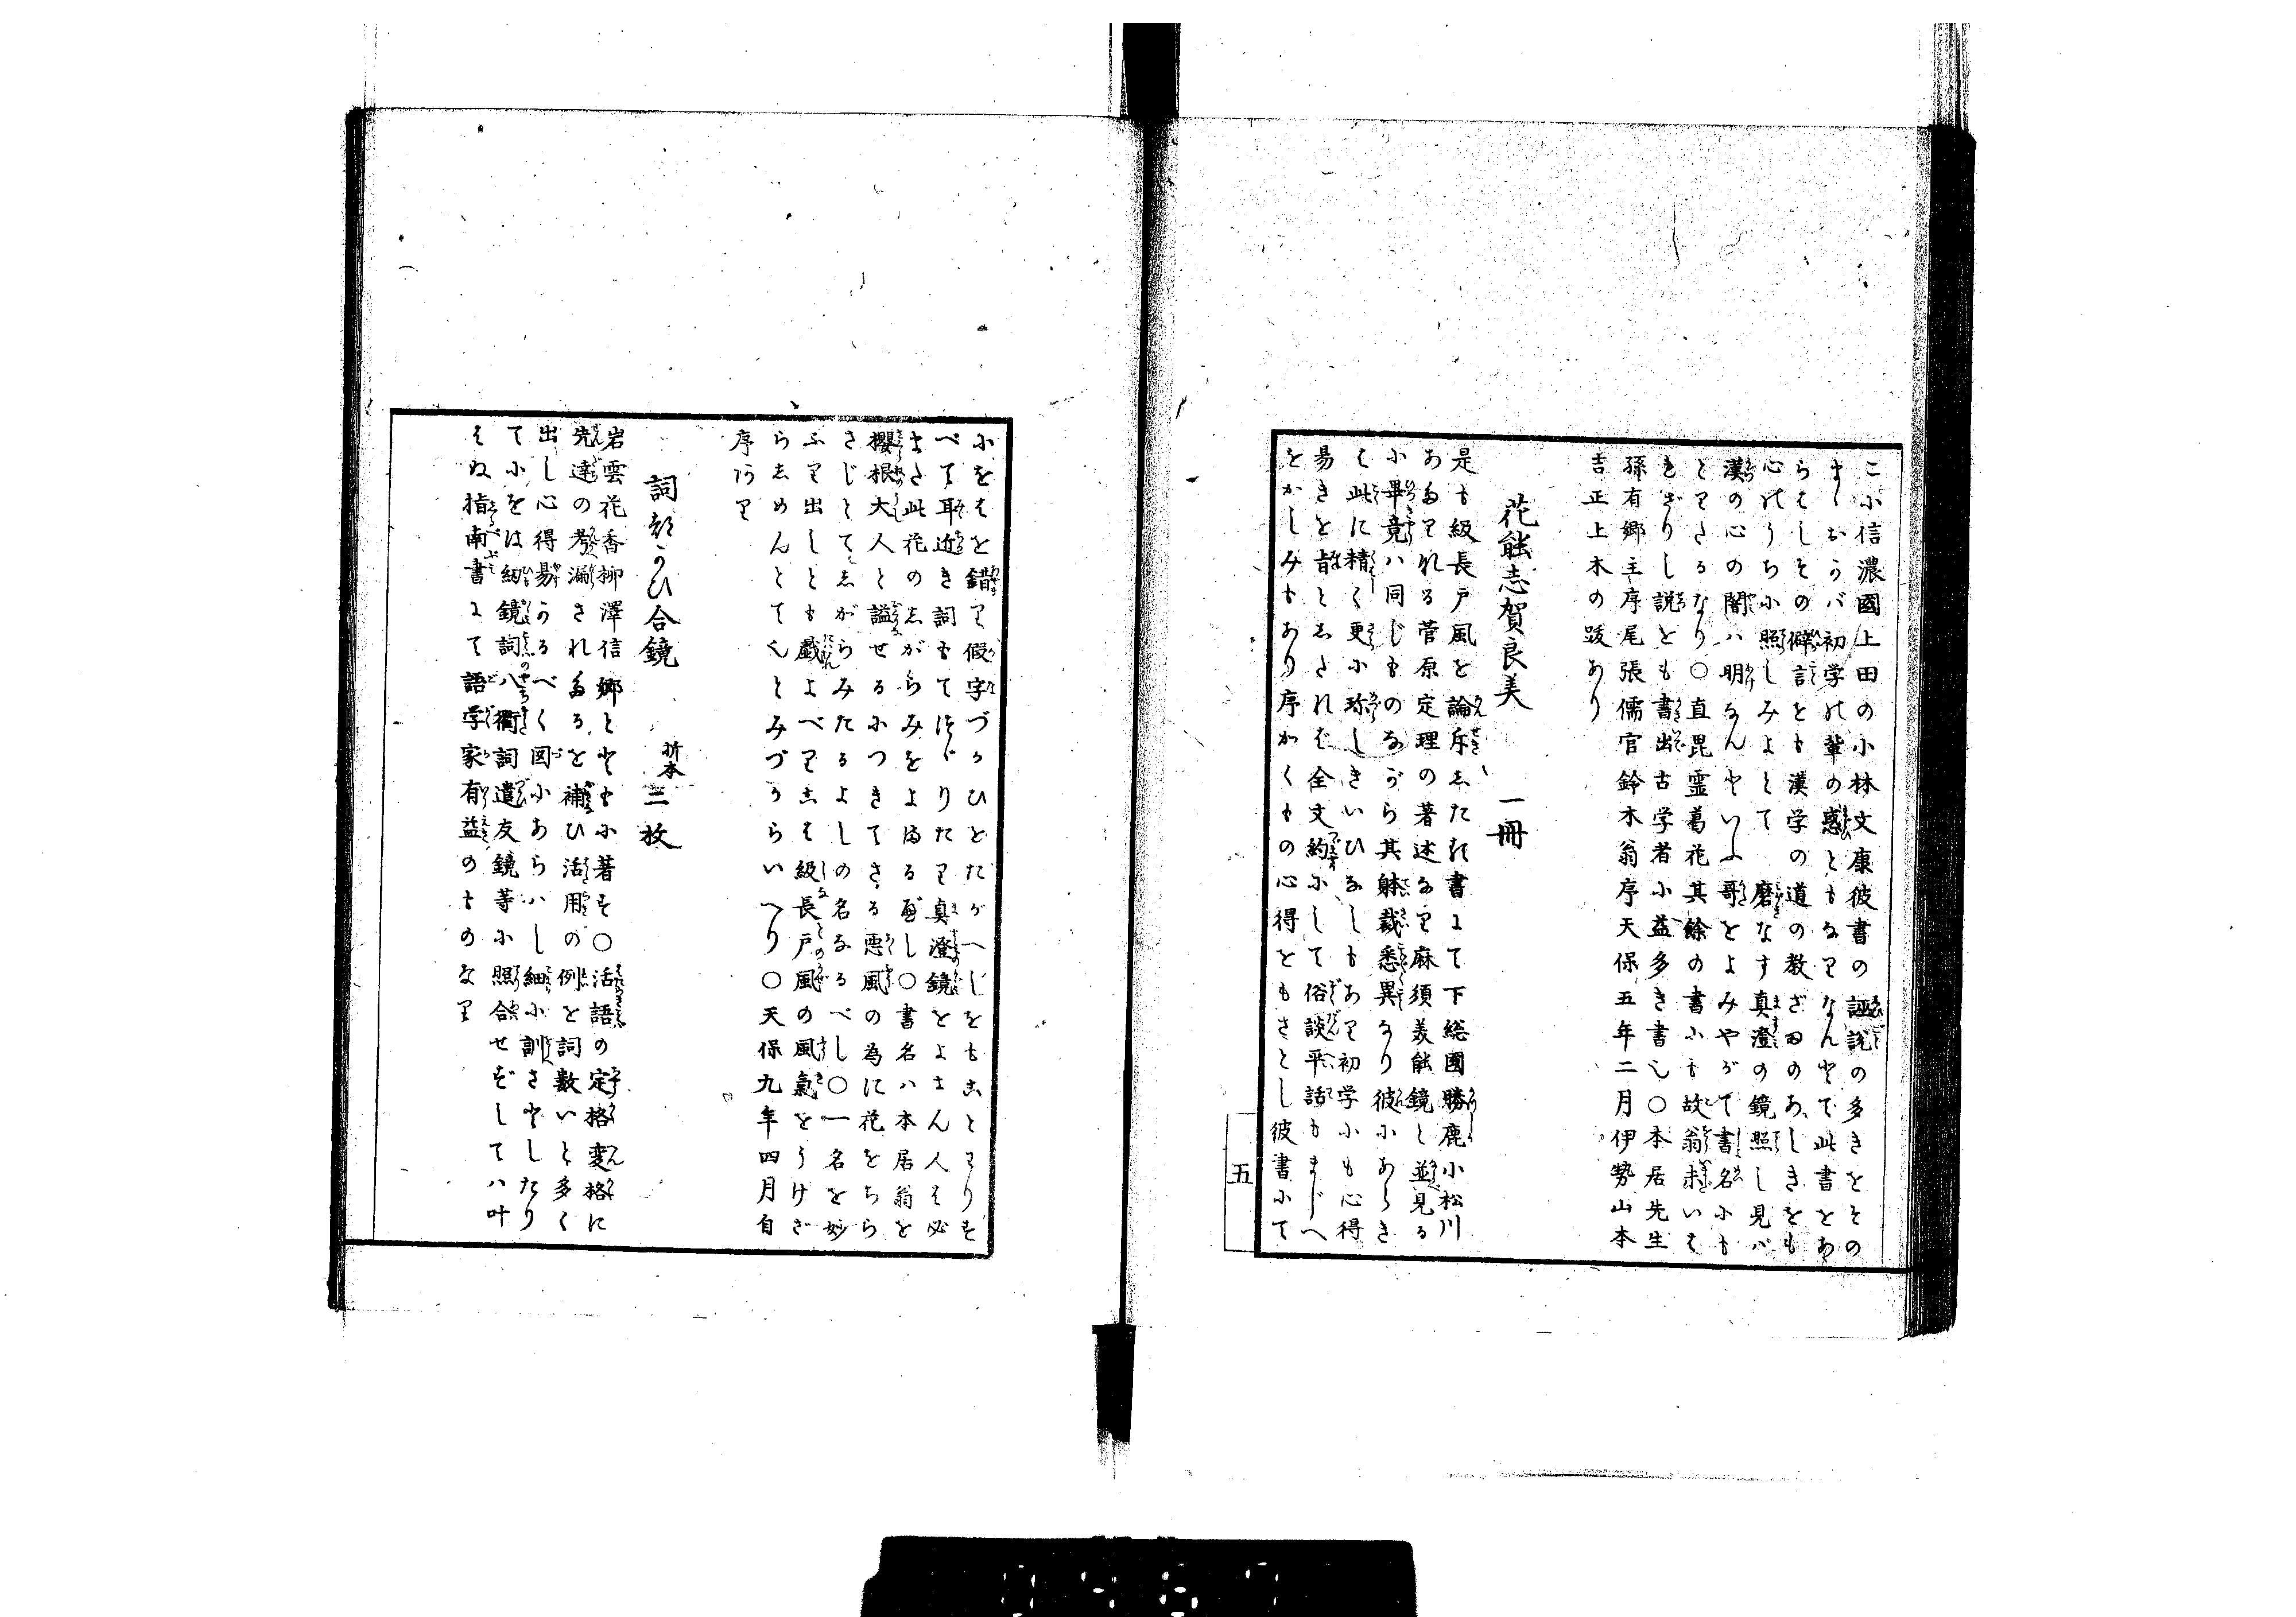 こに信濃國上田の小林文康彼書の誣説の多きをその
まゝおかバ初学の輩の惑ともなりなんとて此書をあ
らはしその僻言とも漢学の道の教ざまのあしきをも
心のうちに照しみよとて 磨なす真澄の鏡照し見バ
漢の心の闇ハ明なんといふ哥とよみやがて書名にも
とりたるなり〇直毘霊葛花其餘の書にも故翁未いは
ざりし説とも書出古学者に益多き書也〇本居先生
孫有郷主序尾張儒官鈴木翁序天保五年二月伊勢山本
吉正上木の跋あり
花能志賀良美 一冊
是も級長戸風を論斥したる書にて下総國勝鹿小松川
あたりなる菅原定理の著述なり麻須美能鏡と並見る
に畢竟ハ同じものながら其躰裁悉異なり彼にあらき
は此に精く更に珎しきいひなしもあり初学にも心得
易きを旨としたれど全文約にして俗談平話もまじへ
をかしみもあり序かくもの心得ともさとし彼書にて
五
にをはを錯り假字づかひとたがへじをもことわりす
べて耳近き詞もてつゞりたり真澄鏡をよまん人は必
また此花のしがらみをよまるべし〇書名ハ本居翁を
櫻根大人と謚せるにつきてさる悪風の為に花をちら
さじとてしがらみたるよしの名なるべし〇一名を妙
ふり出しとも戯よべりこは級長戸風の風氣をうけざ
らしめんとて也とみづからいへり〇天保九年四月自
序アリ
詞都かひ合鏡 折本 三枚
岩雲花香柳澤信郷とともに著す〇活語の定格変格に
先達の考漏されたるを補ひ活用の例と詞数いと多く
出し心得易かるべく図にあらハし細に訓さとしたり
てにをは紐鏡詞八衢詞遣友鏡等に照合せずしてハ叶
はぬ指南書にて語学家有益のものなり